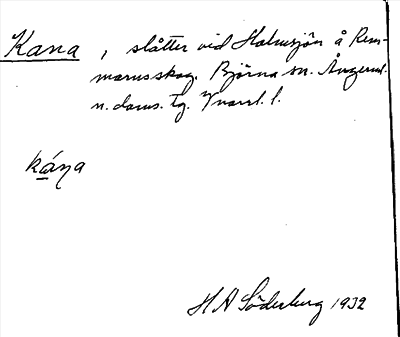 Kana, slåtter vid Holmsjön å Rem-
marns skog. Björna sn. Ångerml.
n. doms. tg. Vnorrl. l.
kána
H A Söderberg 1932